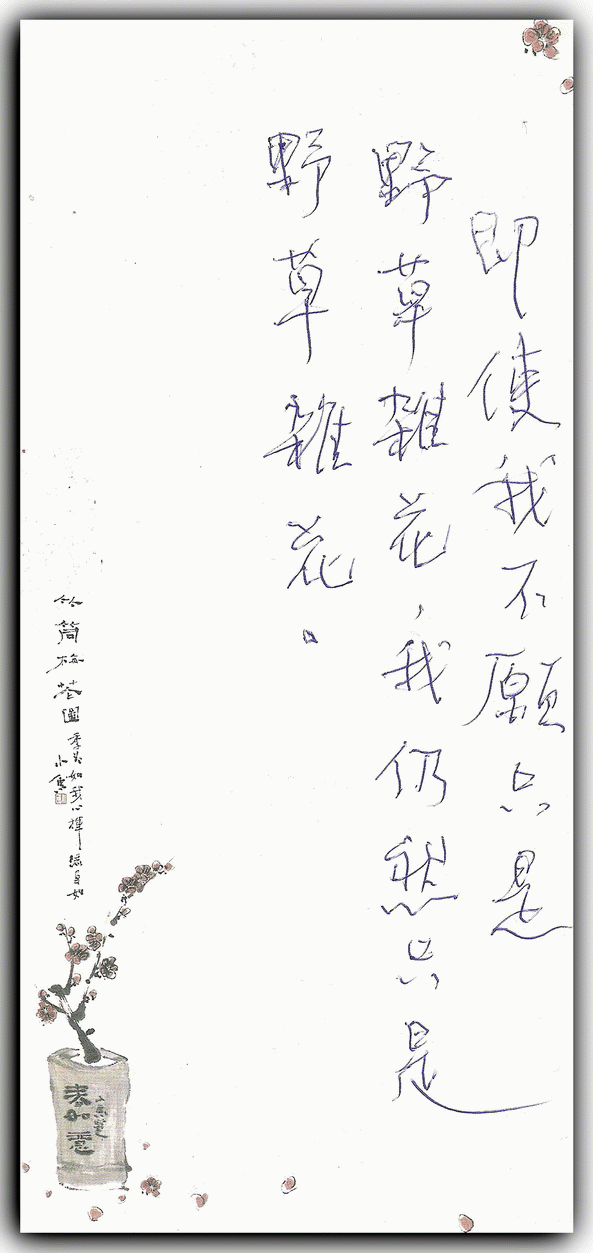 即使我不願只是
野草雜花，我仍然只是
野草雜花。
竹筒梅花圖
小魚
春如意